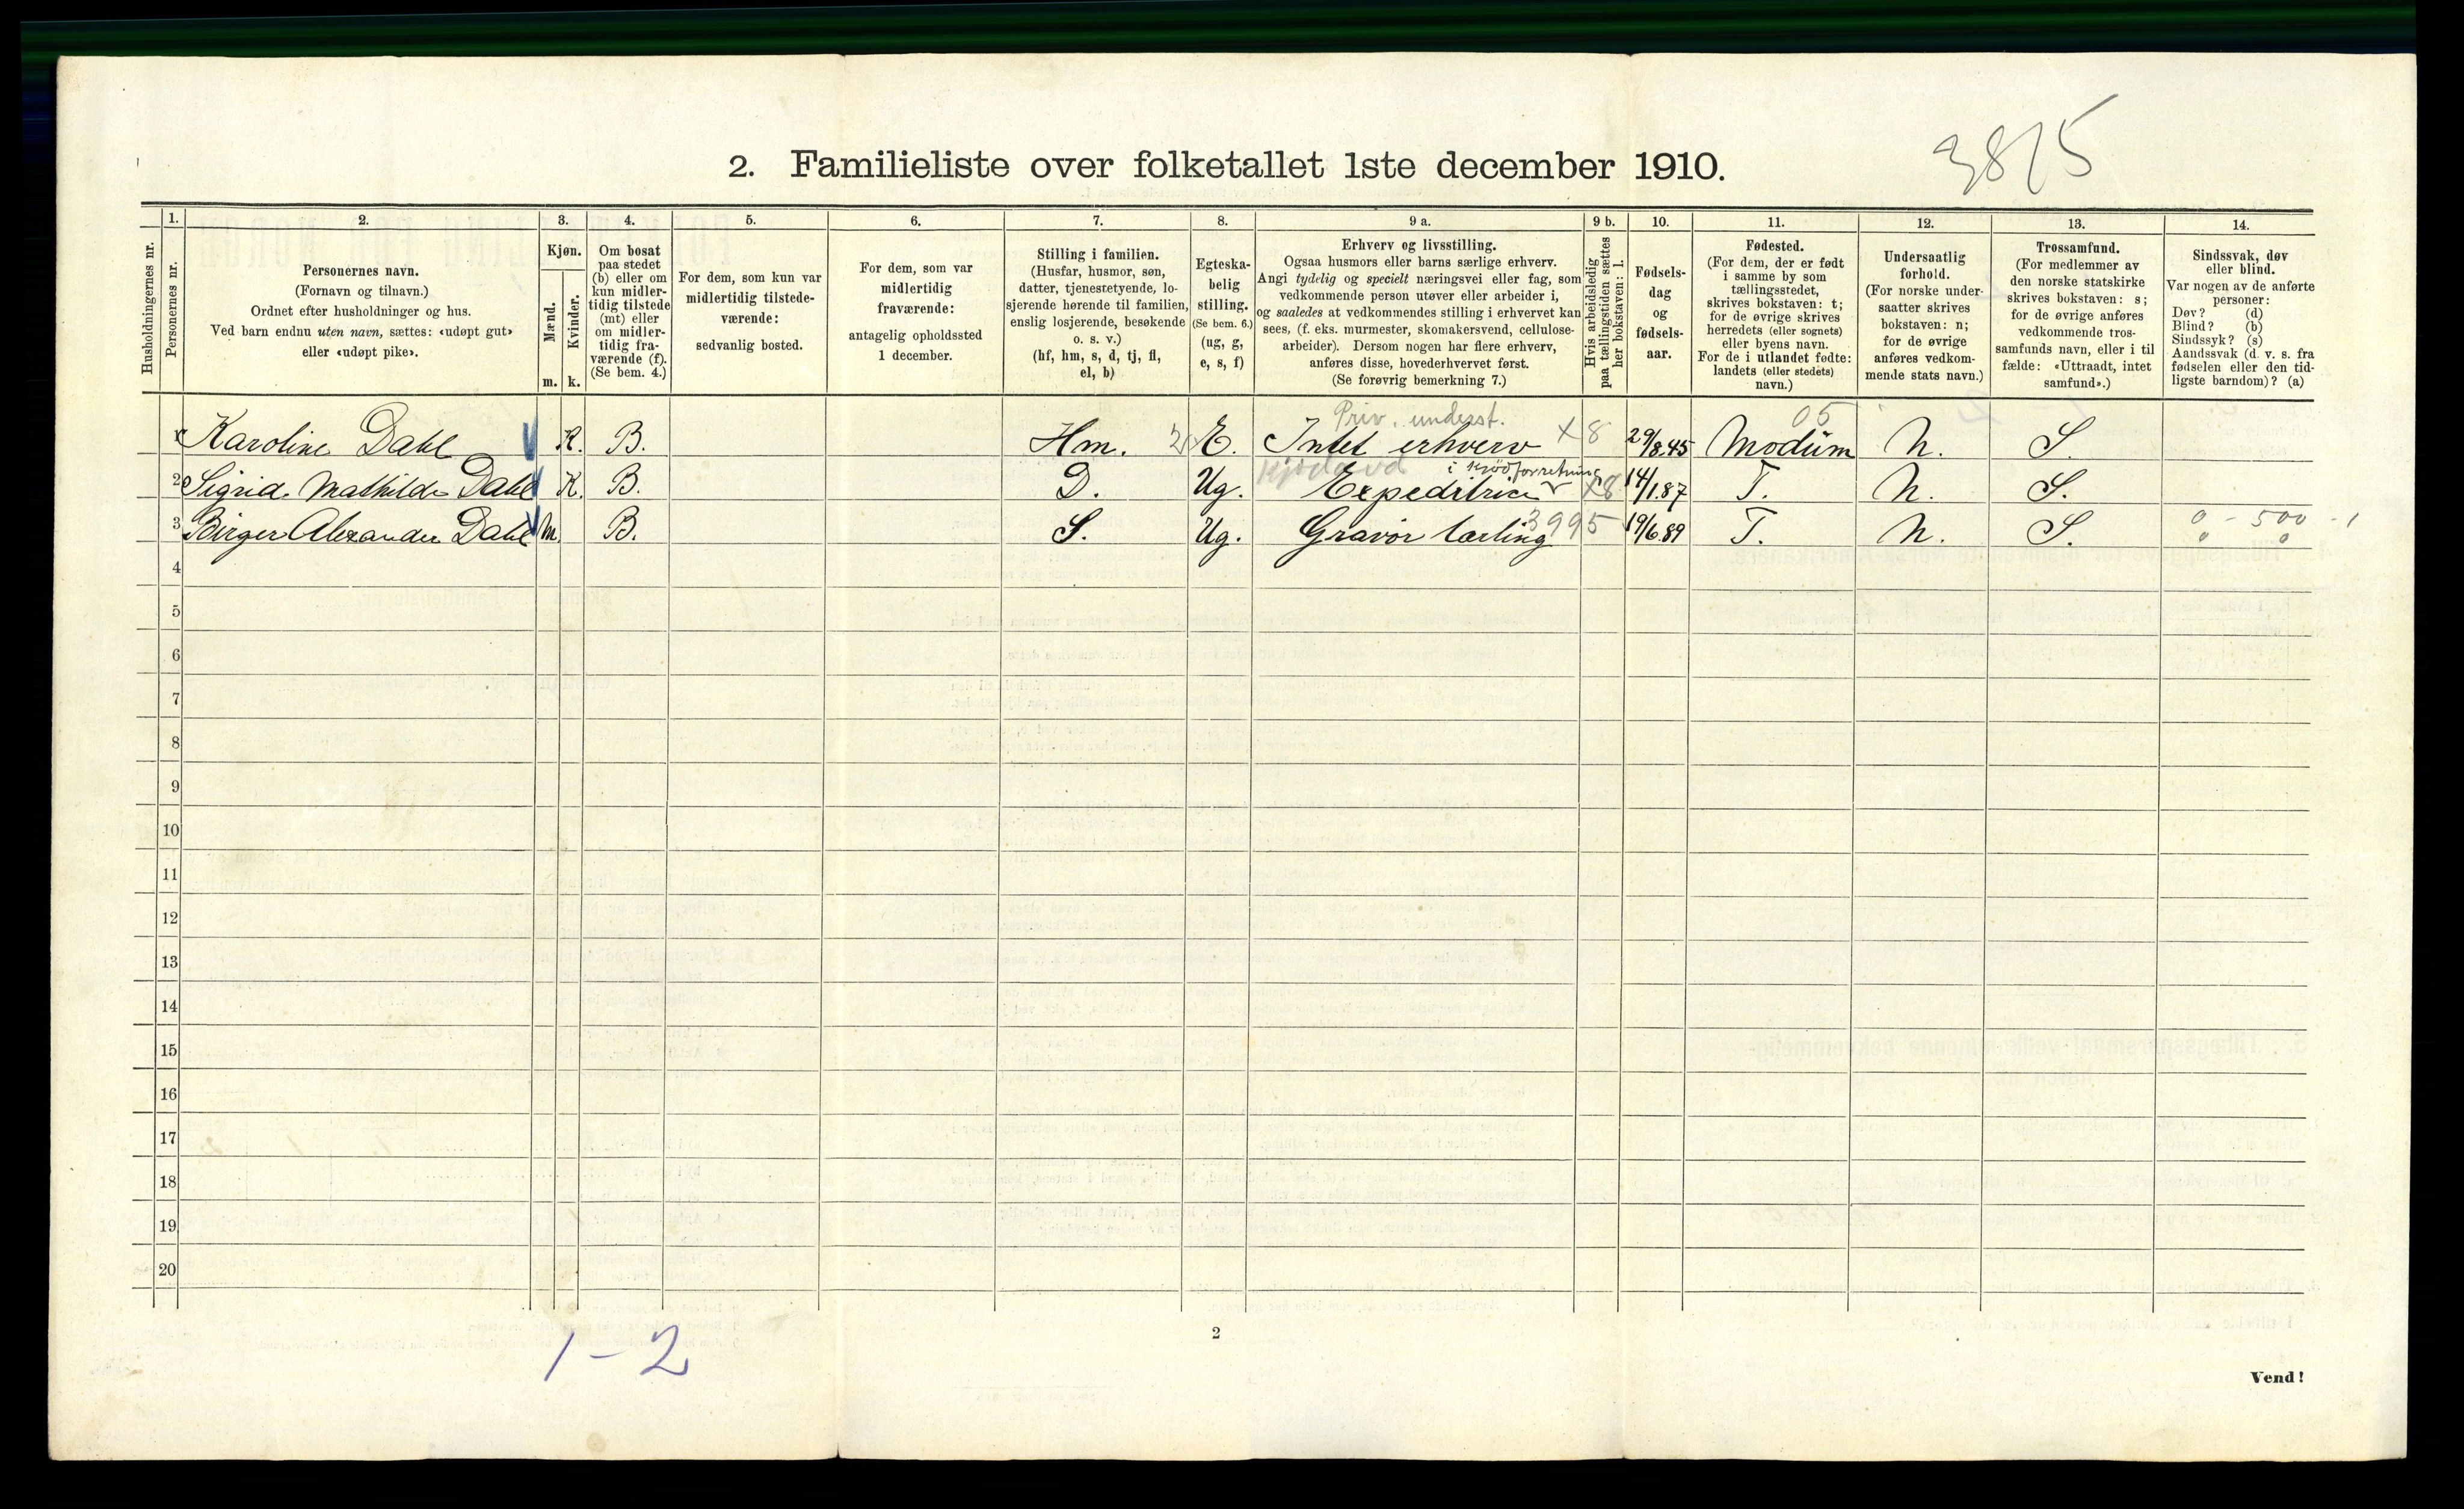 3875
2. Familieliste over folketallet 1ste december 1910.
Husholdningernes nr.
1.
Personernes nr.
2.
Personernes navn.
(Fornavn og tilnavn.)
Ordnet efter husholdninger og hus.
Ved barn endnu uten navn, sættes: «udøpt gut»
eller «udøpt pike».
3.
Kjøn.
Mænd.
Kvinder.
m. k.
4.
Om bosat
paa stedet
(b) eller om
kun midler-
tidig tilstede
(mt) eller
om midler-
tidig fra-
værende (f).
(Se bem. 4.)
5.
For dem, som kun var
midlertidig tilstede-
værende:
sedvanlig bosted.
6.
For dem, som var
midlertidig
fraværende:
antagelig opholdssted
1 december.
7.
Stilling i familien.
(Husfar, husmor, søn,
datter, tjenestetyende, lo-
sjerende hørende til familien,
enslig losjerende, besøkende
o. s. v.)
(hf, hm, s, d, tj, fl,
el, b)
8.
Egteska-
belig
stilling.
(Se bem. 6.)
(ug, g,
e, s, f)
9 a.
Erhverv og livsstilling.
Ogsaa husmors eller barns særlige erhverv.
Angi tydelig og specielt næringsvei eller fag, som
vedkommende person utøver eller arbeider i,
og saaledes at vedkommendes stilling i erhvervet kan
sees, (f. eks. murmester, skomakersvend, cellulose-
arbeider). Dersom nogen har flere erhverv,
anføres disse, hovederhvervet først.
(Se forøvrig bemerkning 7.)
9 b.
Hvis arbeidsledig
paa tællingstiden sættes
her bokstaven: l.
10.
Fødsels-
dag
og
fødsels-
aar.
11.
Fødested.
(For dem, der er født
i samme by som
tællingsstedet,
skrives bokstaven: t;
for de øvrige skrives
herredets (eller sognets)
eller byens navn.
For de i utlandet fødte:
landets (eller stedets)
navn.)
12.
Undersaatlig
forhold.
(For norske under-
saatter skrives
bokstaven: n;
for de øvrige
anføres vedkom-
mende stats navn.)
13.
Trossamfund.
(For medlemmer av
den norske statskirke
skrives bokstaven: s;
for de øvrige anføres
vedkommende tros-
samfunds navn, eller i til
fælde: «Uttraadt, intet
samfund».)
14.
Sindssvak, døv
eller blind.
Var nogen av de anførte
personer:
Døv? (d)
Blind? (b)
Sindssyk? (s)
Aandssvak (d. v. s. fra
fødselen eller den tid-
ligste barndom)? (a)
Priv. underst. 05
1 Karoline Dahl K. B. Hm. E. Intet erhverv X 8 29/8.45 Modum N. S.
i kjödforretning
2 Sigrid Mathilde Dahl K. B. D. Ug. Expeditrice X8 14/1.87 T. N. S.
3 Birger Alexander Dahl M. B. S. Ug. Gravör lærling 3995 19/6.89 T. N. S. 0 - 500 - 1
0 0
4
5
6
7
8
9
10
11
12
13
14
15
16
17
18
19
20
1 - 2
2
Vend!